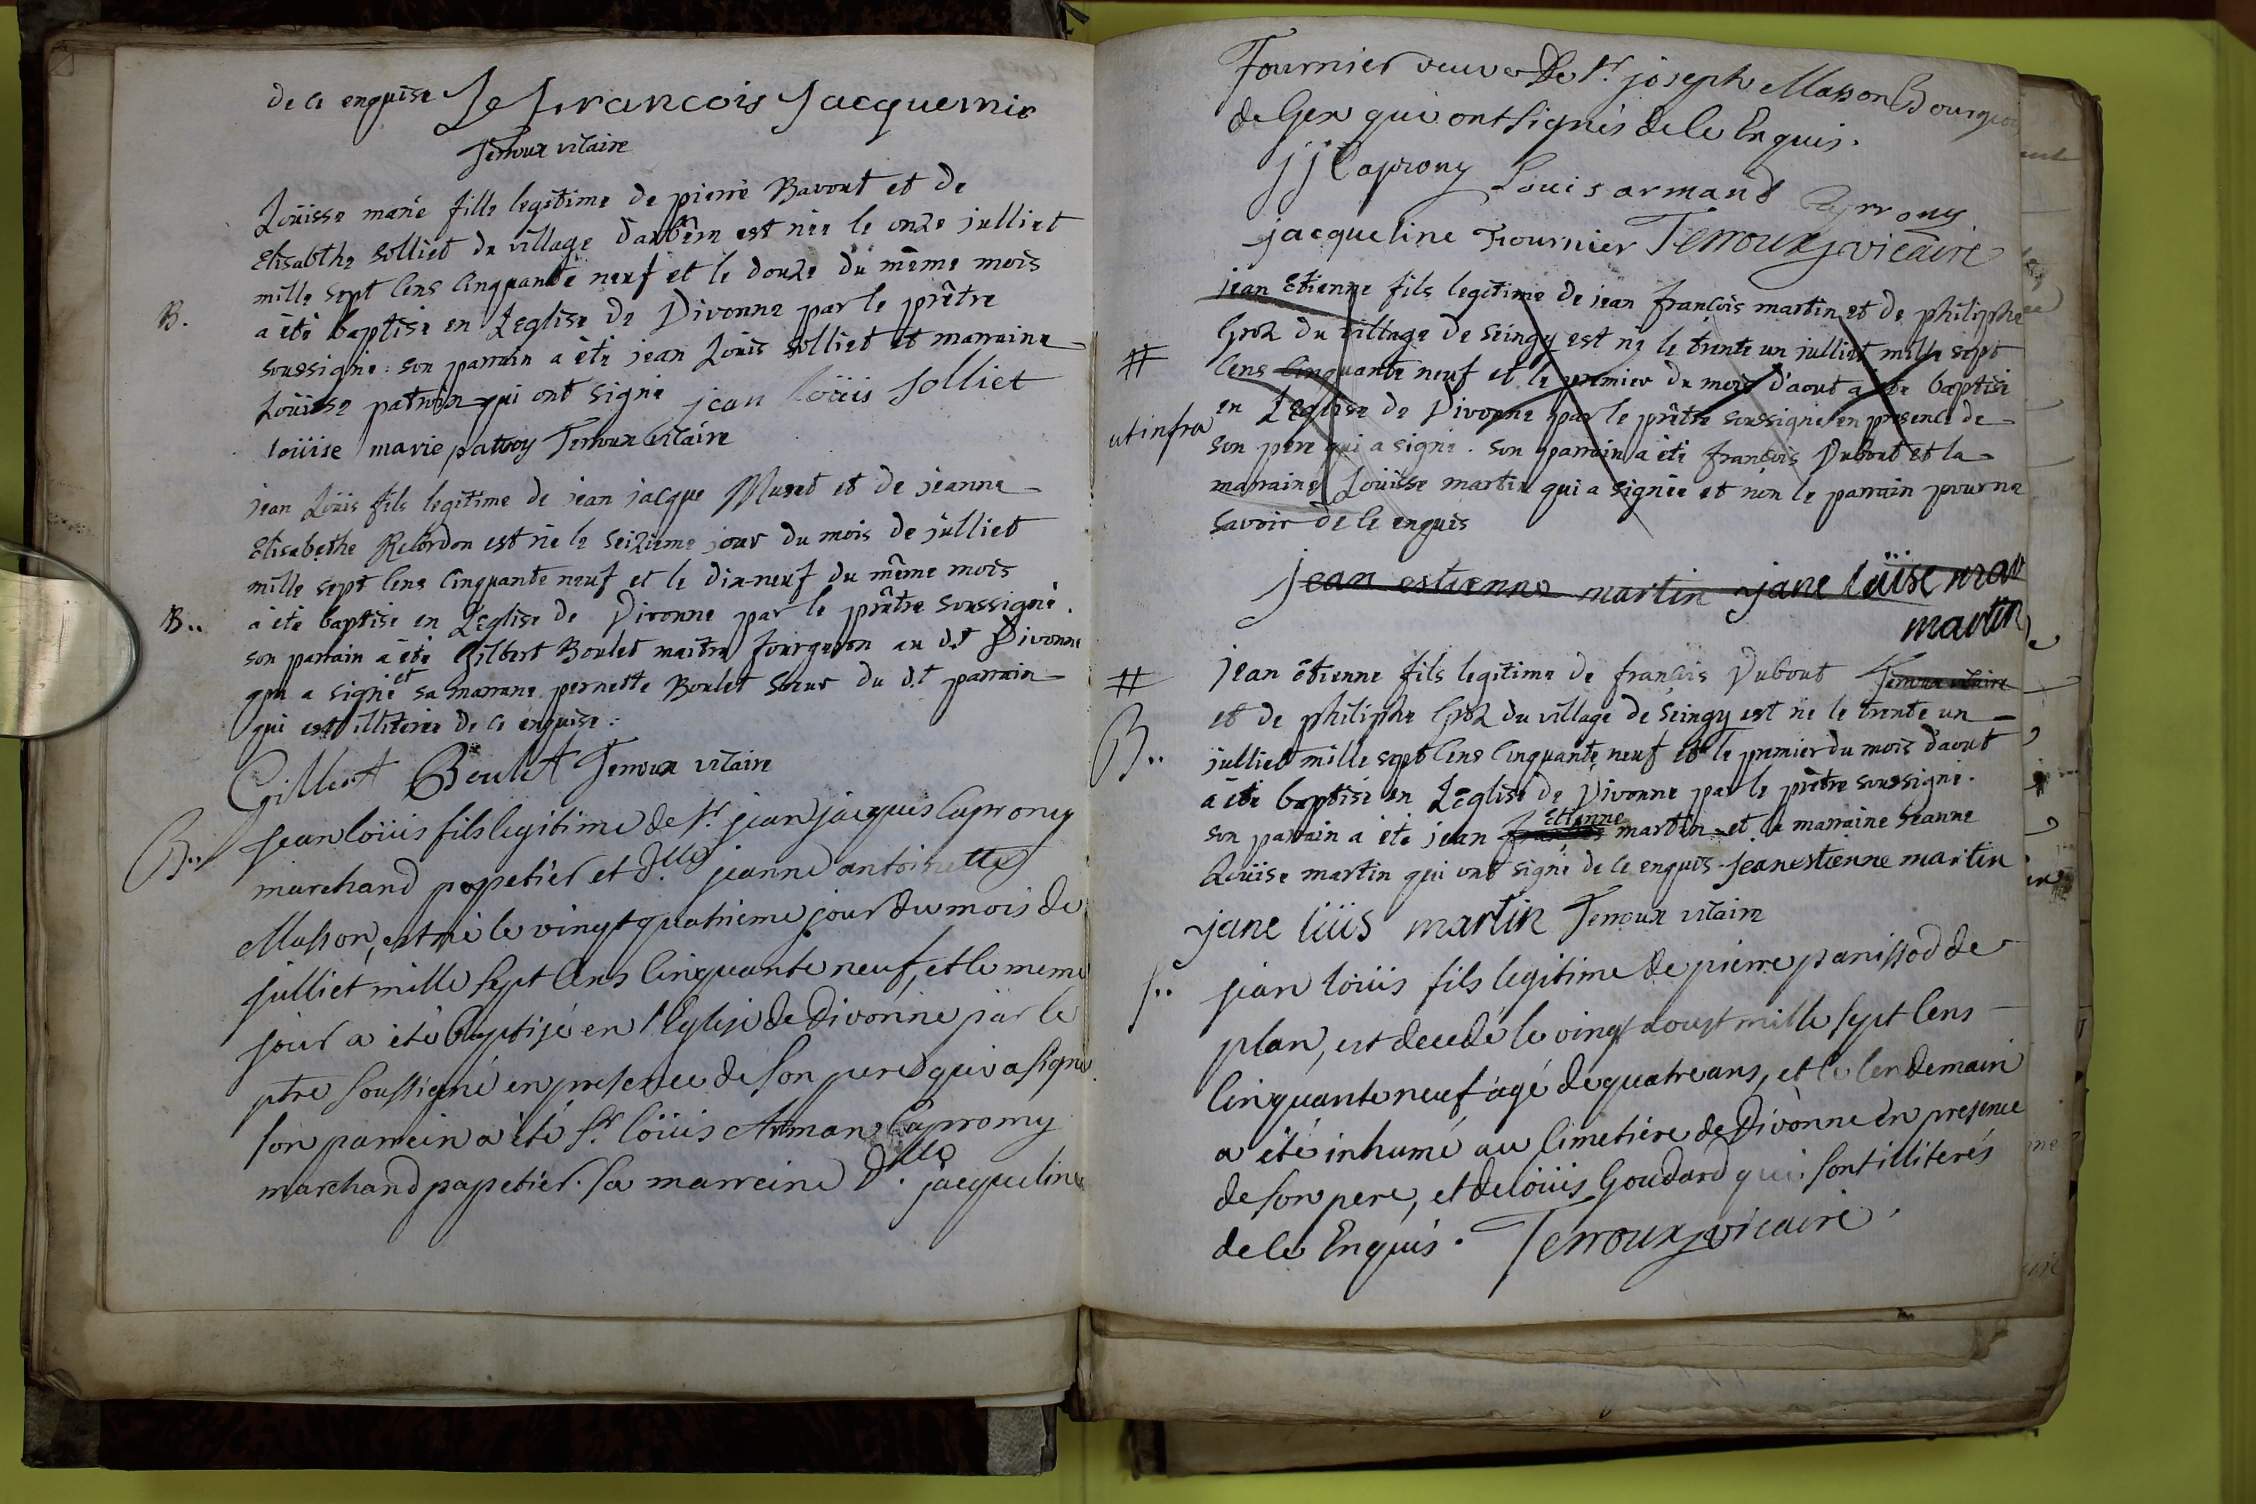 de ce enquise Je francois Jacquemie
Terroux vicaire
Loüisse marie fille legitime de pierre Bavout et de
Elisabthe solliet du village d'arbêre est née le onze julliet
mille sept Cens Cinquante neuf et le douze du même mois
B.
a été baptise en L'eglise de Divonne par le prêtre
soussigné: son parrain a été jean Loüis solliet et marraine
Loüisse patroin qui ont signé jean Loüis Solliet
loüise marie patroy Terroux vicaire
jean Loüis fils legitime de jean jacque Muset et de jeanne
Elisabethe Recordon est né le seizieme jour du mois de julliet
mille sept Cens Cinquante neuf et le dix-neuf du même mois
B..
a été baptisé en L'eglise de Divonne par le prêtre soussigné.
son parrain a été Gilbert Boulet maitre fourgeron au d.t Divonne
qui a signé et sa marrane pernette Boulet sœur du d.t parrain
qui est illiterée de ce enquise.
Gilbert Boulet Terroux vicaire
B..
Jean loüis fils legitime de Sr. jean jacques Caprony
marchand papetier et d.lle jeanne antoinette
Masson, est né le vingt quatrieme jour du mois de
julliet mille sept Cens Cinquante neuf, et le meme
jour a été baptisé en l'Eglise de Divonne par le
ptre soussigné en presence de son pere qui a signé
son parrein a été Sr. loüis Arman Caprony
marchand papetier. sa marreine D.lle jacqueline
Fournier veuve de Sr. joseph Masson Bourgeois
de Gex qui ont signés de ce Enquis.
jj Caprony Louis armand Caprony
jacqueline Fournier Terroux vicaire
jean Etienne fils legitime de jean françois martin et de philiphe
Groz du village de seingy est né le trente un julliet mille sept
#
Cens Cinquante neuf et le premier du mois d'aout a été baptisé
en L'eglise de Divonne par le prêtre soussigné en presence de
ut infra
son pere qui a signé. son parrain a été françois Dubout et la
marraine Loüisse martin qui a signée et non le parrain pour ne
savoir de ce enquis
jean estienne martin jane loüise mar
martin
#
jean êtienne fils legitime de françis Dubout Terroux vicaire
et de philiphe Groz du village de seingy est né le trente un
B..
julliet mille sept Cens Cinquante neuf et le premier du mois d'aout
a été baptisé en L'eglise de Divonne par le prêtre soussigné.
Etienne
son parrain a été jean françois martin et la marraine jeanne
Loüise martin qui ont signé de ce enquis. jean estienne martin
jane lüis martin Terroux vicaire
S..
jean loüis fils legitime de pierre panissod de
plan, est decedé le vingt aoust mille sept Cens
Cinquante neuf agé de quatre ans, et le lendemain
a été inhumé au Cimetiére de Divonne en presence
de son pere, et de loüis Goudard qui sont illiterés
de ce Enquis. Terroux vicaire.